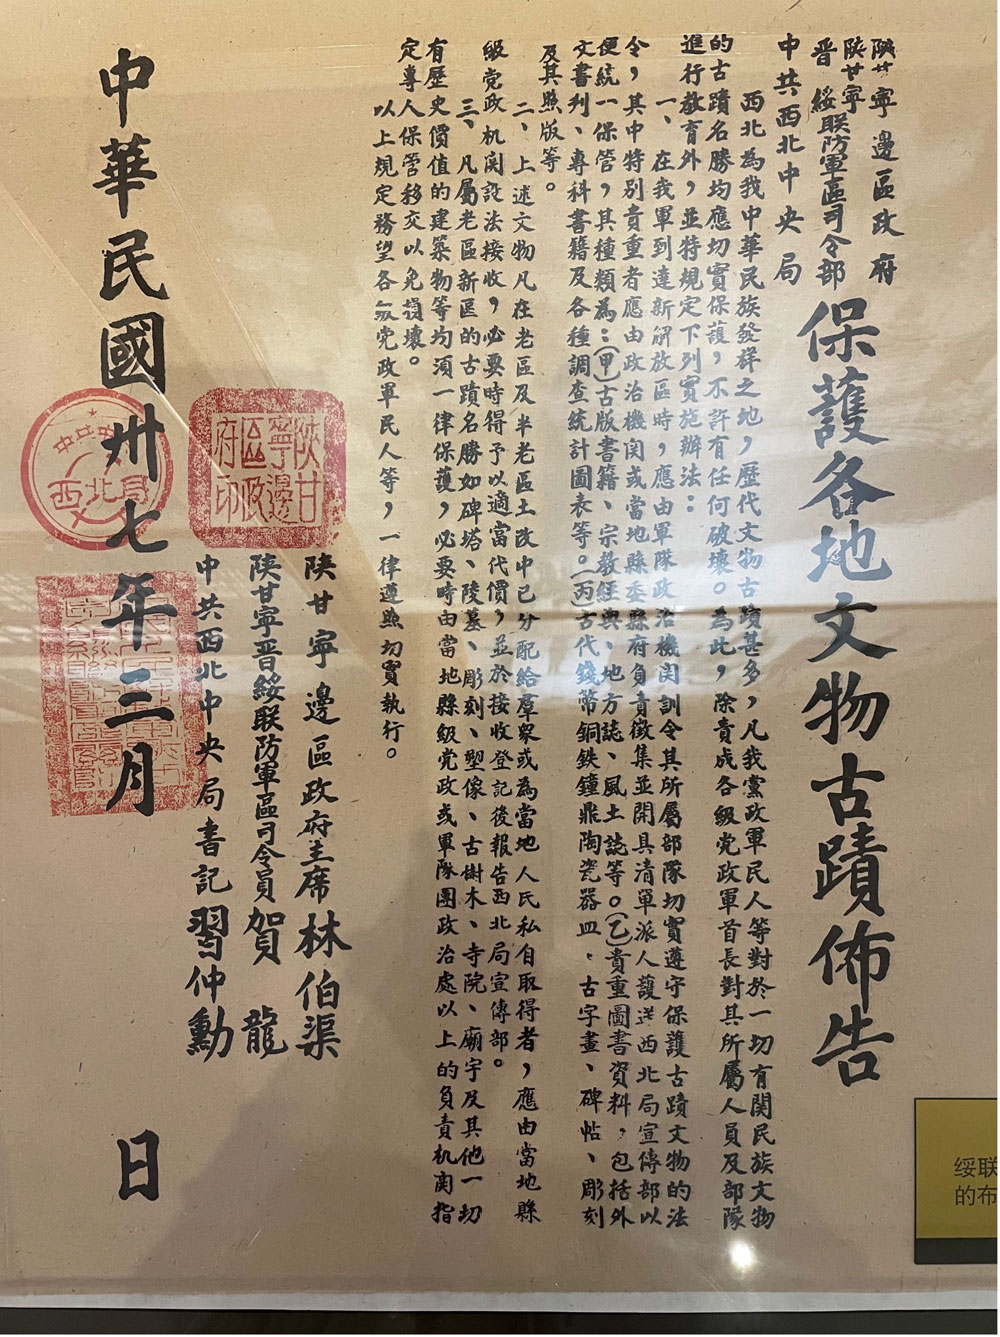 陝甘寧邊區政府
陝甘寧晋綏联防軍區司令部
中共西北中央局
保護各地文物古蹟佈告
西北為我中華民族發祥之地，歷代文物古蹟甚多，凡我黨政軍民人等對於一切有関民族文物
的古蹟名勝均應切實保護，不許有任何破壞。為此，除責成各級党政軍首長對其所屬人員及部隊
進行教育外，並特規定下列實施辦法：
一、在我軍到達新解放區時，應由軍隊政治機関訓令其所屬部隊切實遵守保護古蹟文物的法
令，其中特別貴重者應由政治機関或當地縣委縣府負責徵集並開具清單派人護送西北局宣傳部以
便統一保管，其種類為：(甲)古版書籍、宗教經典、地方誌、風土誌等。(乙)貴重圖書資料，包括外
文書刋、專科書籍及各種調查統計圖表等。(丙)古代錢幣銅鉄鐘鼎陶瓷器皿、古字畫、碑帖、彫刻
及其照版等。
二、上述文物凡在老區及半老區土改中已分配給羣眾或為當地人民私自取得者，應由當地縣
級党政机関設法接收，必要時得予以適當代價，並於接收登記後報告西北局宣傳部。
三、凡屬老區新區的古蹟名勝如碑塔、陵墓、彫刻、塑像、古樹木、寺院、廟宇及其他一切
有歷史價值的建築物等均須一律保護，必要時由當地縣級党政或軍隊團政治處以上的負責机関指
定專人保管移交以免損壞。
以上規定務望各級党政軍民人等，一律遵照切實執行。
陝甘寧邊區政府主席林伯渠
陝甘寧晋綏联防軍區司令員賀龍
中共西北中央局書記習仲勳
陝甘寧邊區政府印
中華民國卅七年三月 日
绥联
的布